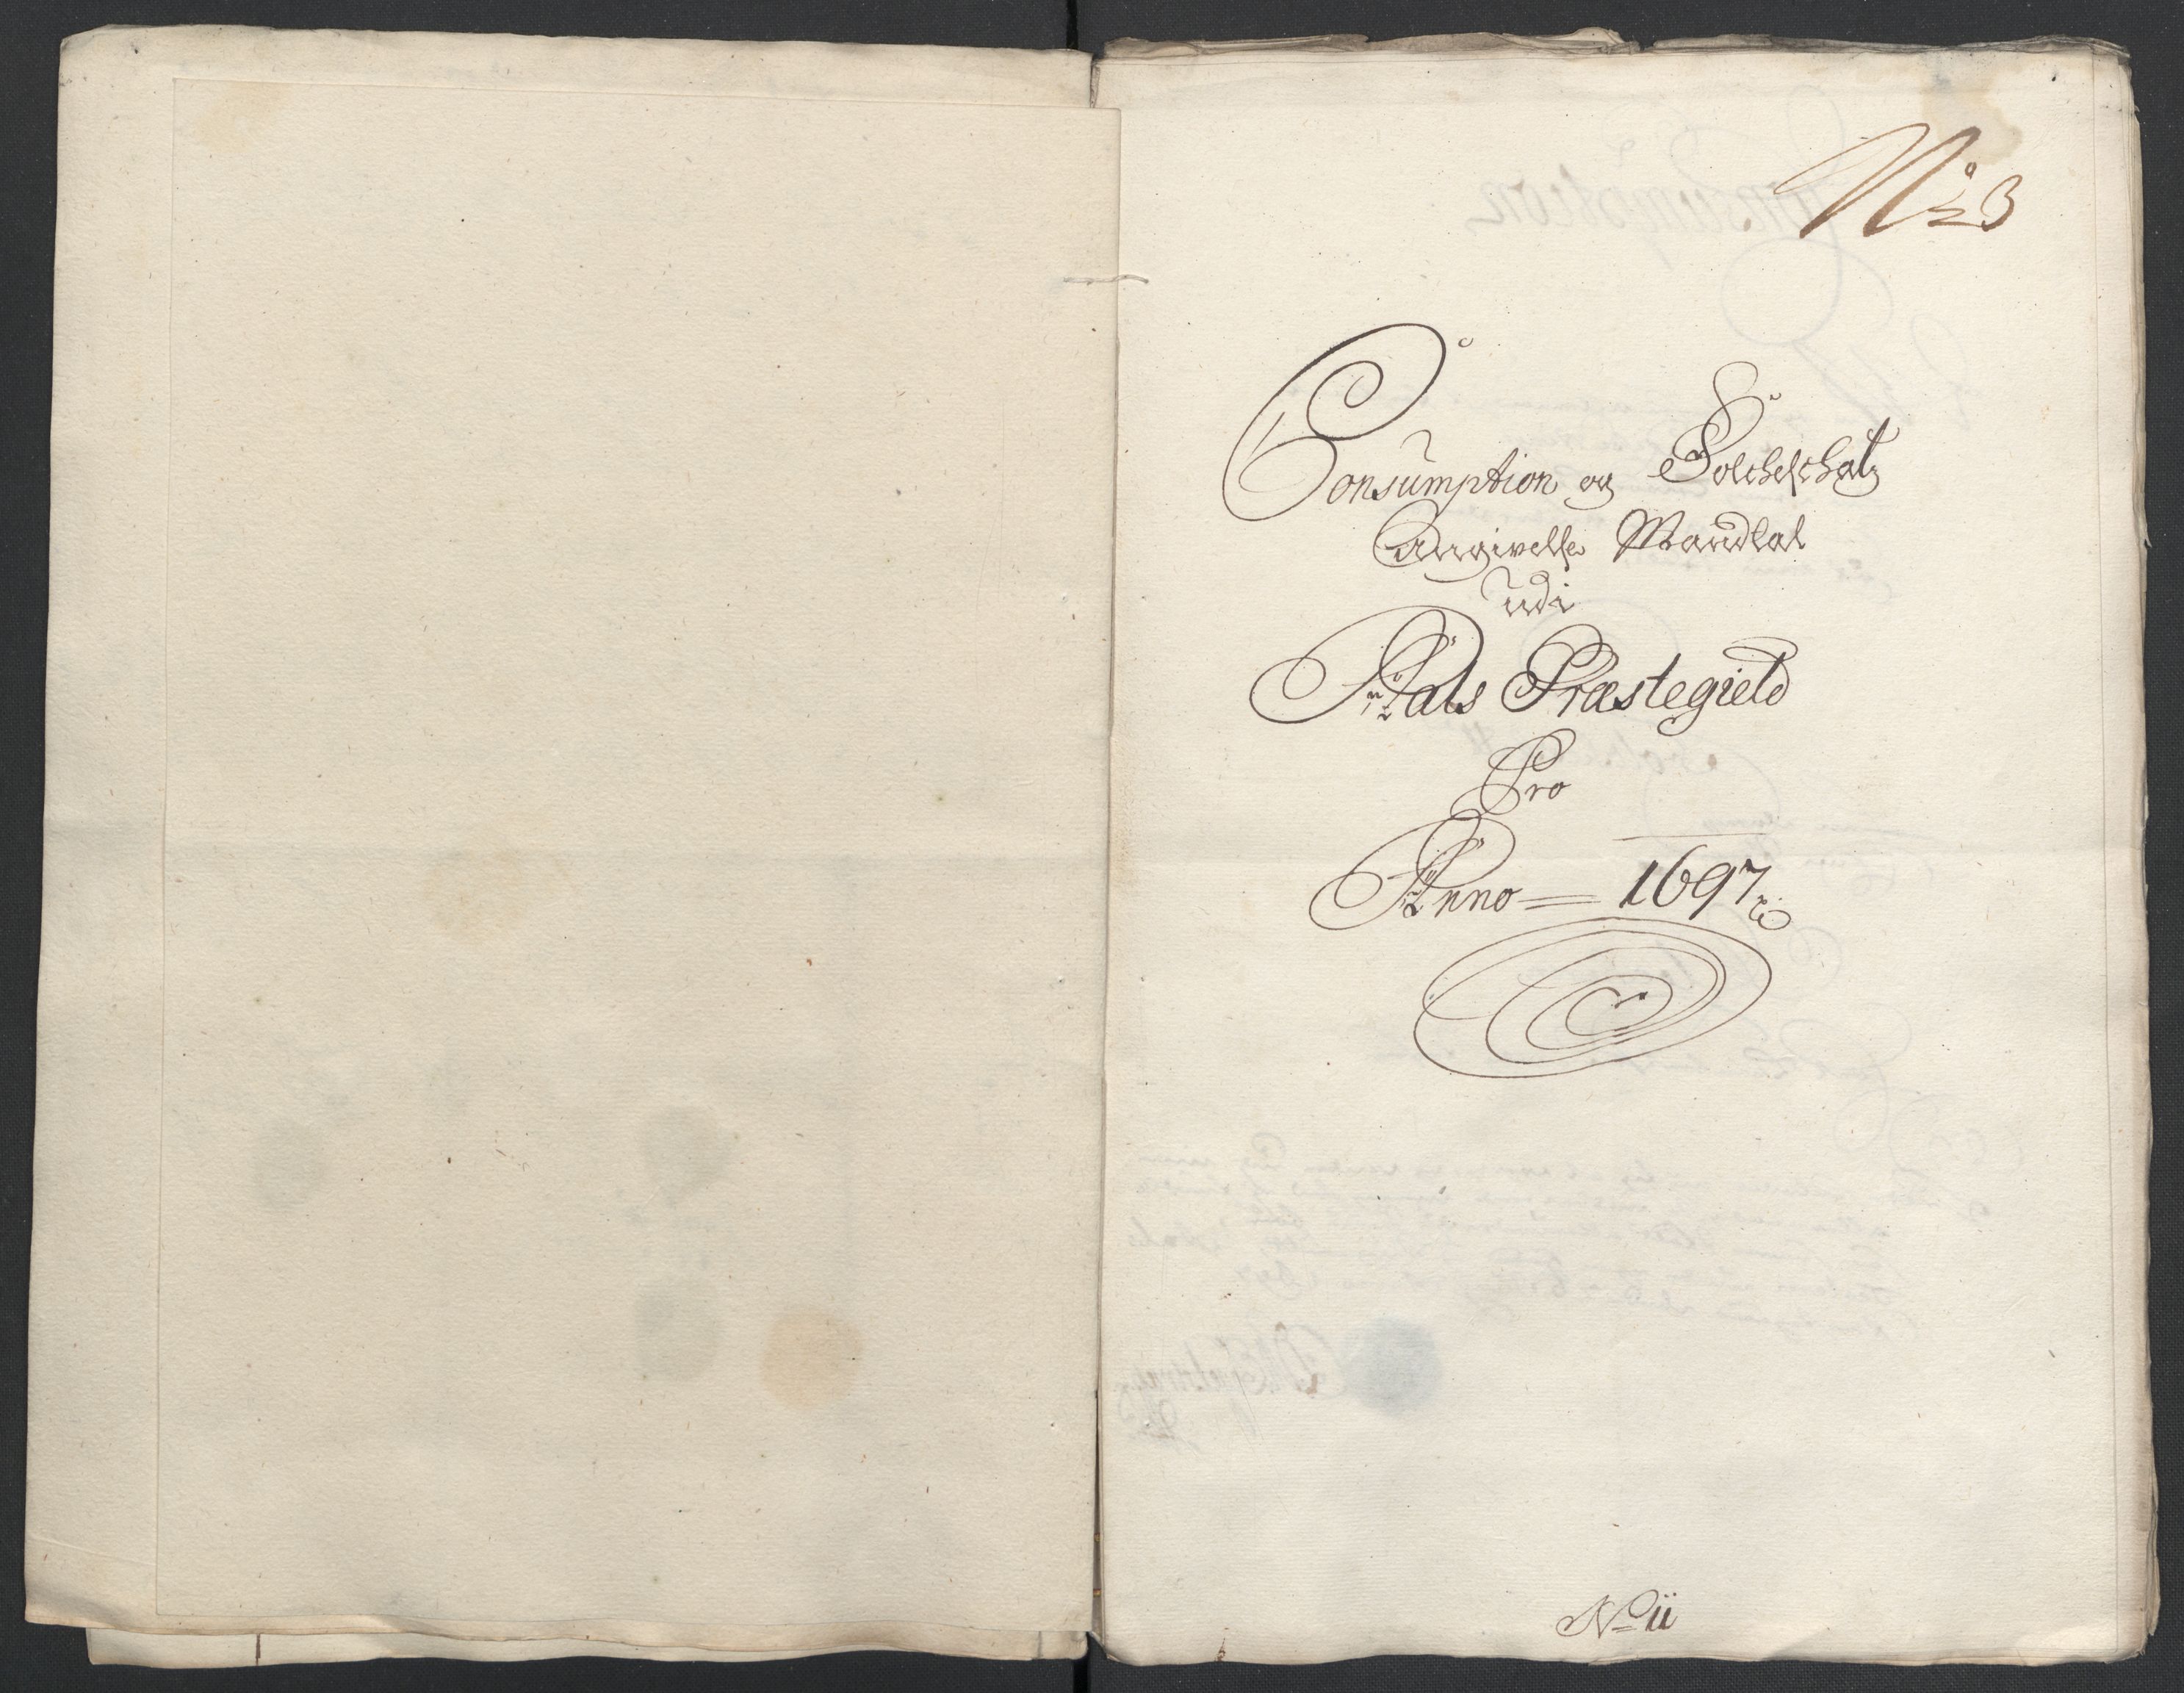 No 3
Consumption og Folcheschatz
Angivelse Mandtal
udi
Aals Præstegield
Pro
Anno = 1697
No ii